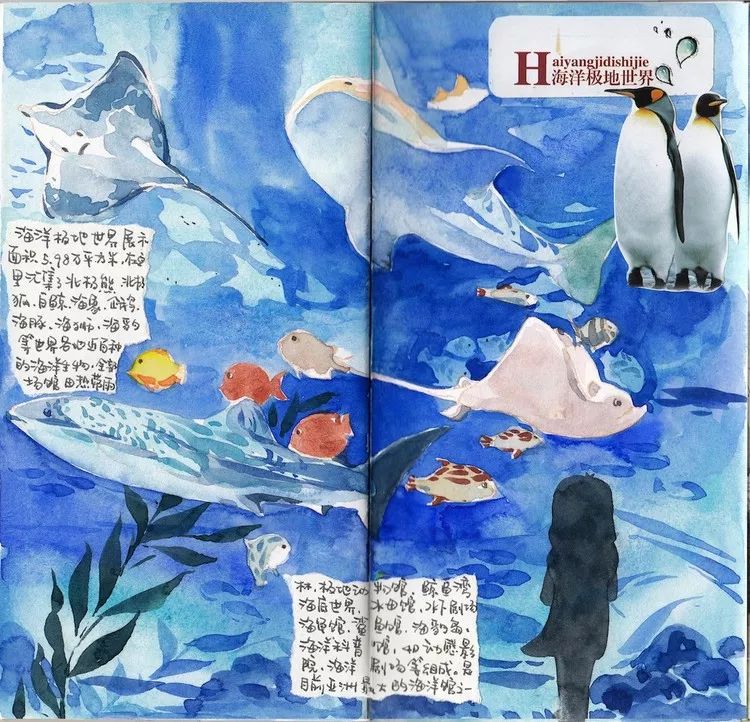 Haiyangjidishijie
海洋极地世界
海洋极地世界展示
面积5.98万平方米,在这
里汇集了北极熊、北极
狐、白鲸、海象、企鹅、
海豚、海狮、海豹
等世界各地近百种
的海洋生物,全
场馆由热带雨
林、极地动物馆、鲸鱼湾
海底世界、水母馆、水下剧场
海兽馆、鲨鱼馆、海豹岛
海洋科普馆,4D动感影
院、海洋剧场等组成。是
目前亚洲最大的海洋馆之一